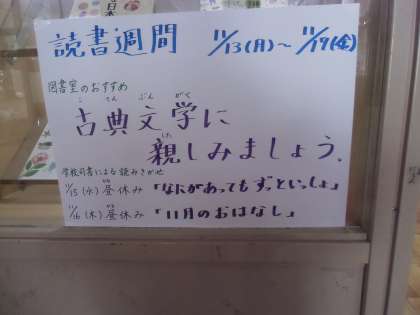 読書週間 11/13(月)〜11/17(金)
図書室のおすすめ
こ てん ぶん がく
古典文学に
した
親しみましょう。
学校司書による読みきかせ
11/15(水)昼休み「なにがあってもずっといっしょ」
11/16(木)昼休み「11月のおはなし」